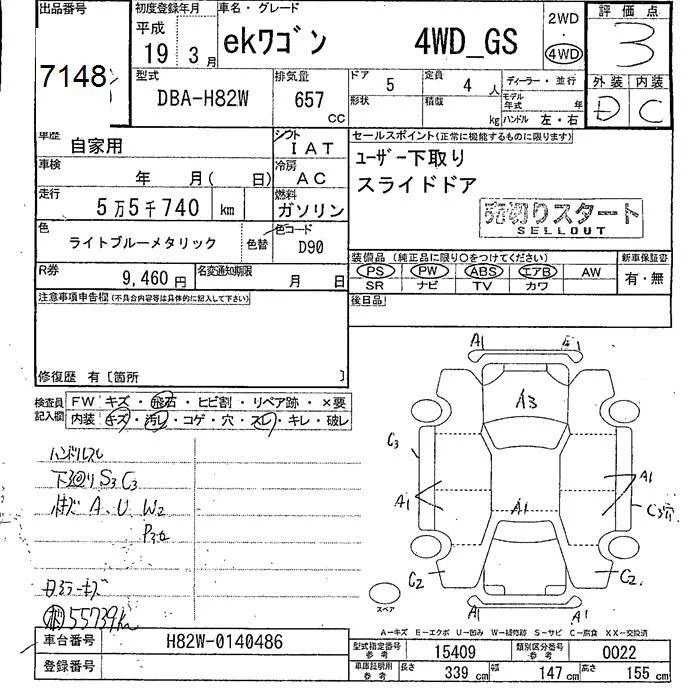 出品番号
7148
初度登録年月
平成 19年 3月
車名・グレード
ekワゴン 4WD_GS
2WD
・
4WD
評価点
3
外装 内装
D C
型式
DBA-H82W
排気量
657 CC
ドア 5
形状
定員 4 人
積載 kg
ディーラー・並行
モデル年式 年
ハンドル 左・右
車歴
自家用
シフト
IAT
車検
年 月( 日)
冷房
AC
走行
5万5千740 km
燃料
ガソリン
色
ライトブルーメタリック
色替
色コード
D90
R券
9,460円
名変通知期限
月 日
セールスポイント(正常に機能するものに限ります)
ユーザー下取り
スライドドア
売切りスタート
SELLOUT
装備品(純正品に限り○をつけてください)
新車保証書
PS PW ABS エアB AW
SR ナビ TV カワ
有・無
後日品
注意事項申告欄(不具合内容等は具体的に記入して下さい)
修復歴 有〔箇所 〕
検査員記入欄
FW キズ・飛石・ヒビ割・リペア跡・×要
内装 キズ・汚レ・コゲ・穴・スレ・キレ・破レ
ハンドルスレ
下回り S3 C3
A、U W2
55739km
A1
A1
A3
C3
A1
A1
A1
C3穴
C2
C2
スペア
A1
A1
A-キズ E-エクボ U-凹み W-補修跡 S-サビ C-腐食 XX-交換済
車台番号
H82W-0140486
登録番号
型式指定番号 参考
15409
類別区分番号 参考
0022
車庫証明用 参考
長さ 339 cm
幅 147 cm
高さ 155 cm